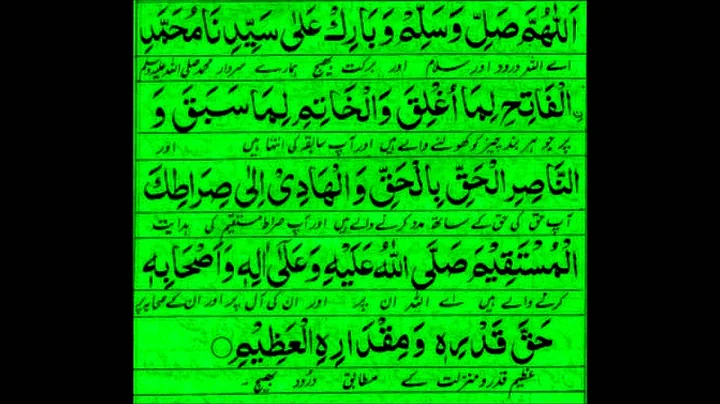 اَللّٰهُمَّ صَلِّ وَسَلِّمْ وَبَارِكْ عَلٰى سَيِّدِنَا مُحَمَّدِ
اے اللہ درود اور سلام اور برکت بھیج ہمارے سردار محمد صلی اللہ علیہ وسلم
الْفَاتِحِ لِمَا أُغْلِقَ وَالْخَاتِمِ لِمَا سَبَقَ وَ
پر جو ہر بند چیز کو کھولنے والے ہیں اور آپ سابقہ کی انتہا ہیں اور
النَّاصِرِ الْحَقِّ بِالْحَقِّ وَالْهَادِىْ اِلٰى صِرَاطِكَ
آپ حق کی حق کے ساتھ مدد کرنے والے ہیں اور آپ صراط مستقیم کی ہدایت
الْمُسْتَقِيْمِ صَلَّى اللهُ عَلَيْهِ وَعَلٰٓى اٰلِهٖ وَاَصْحَابِهٖ
کرنے والے ہیں اے اللہ ان پر اور ان کی آل پر اور ان کے صحابہ پر
حَقَّ قَدْرِهٖ وَمِقْدَارِهِ الْعَظِيْمِ
عظیم قدر و منزلت کے مطابق درود بھیج ۔